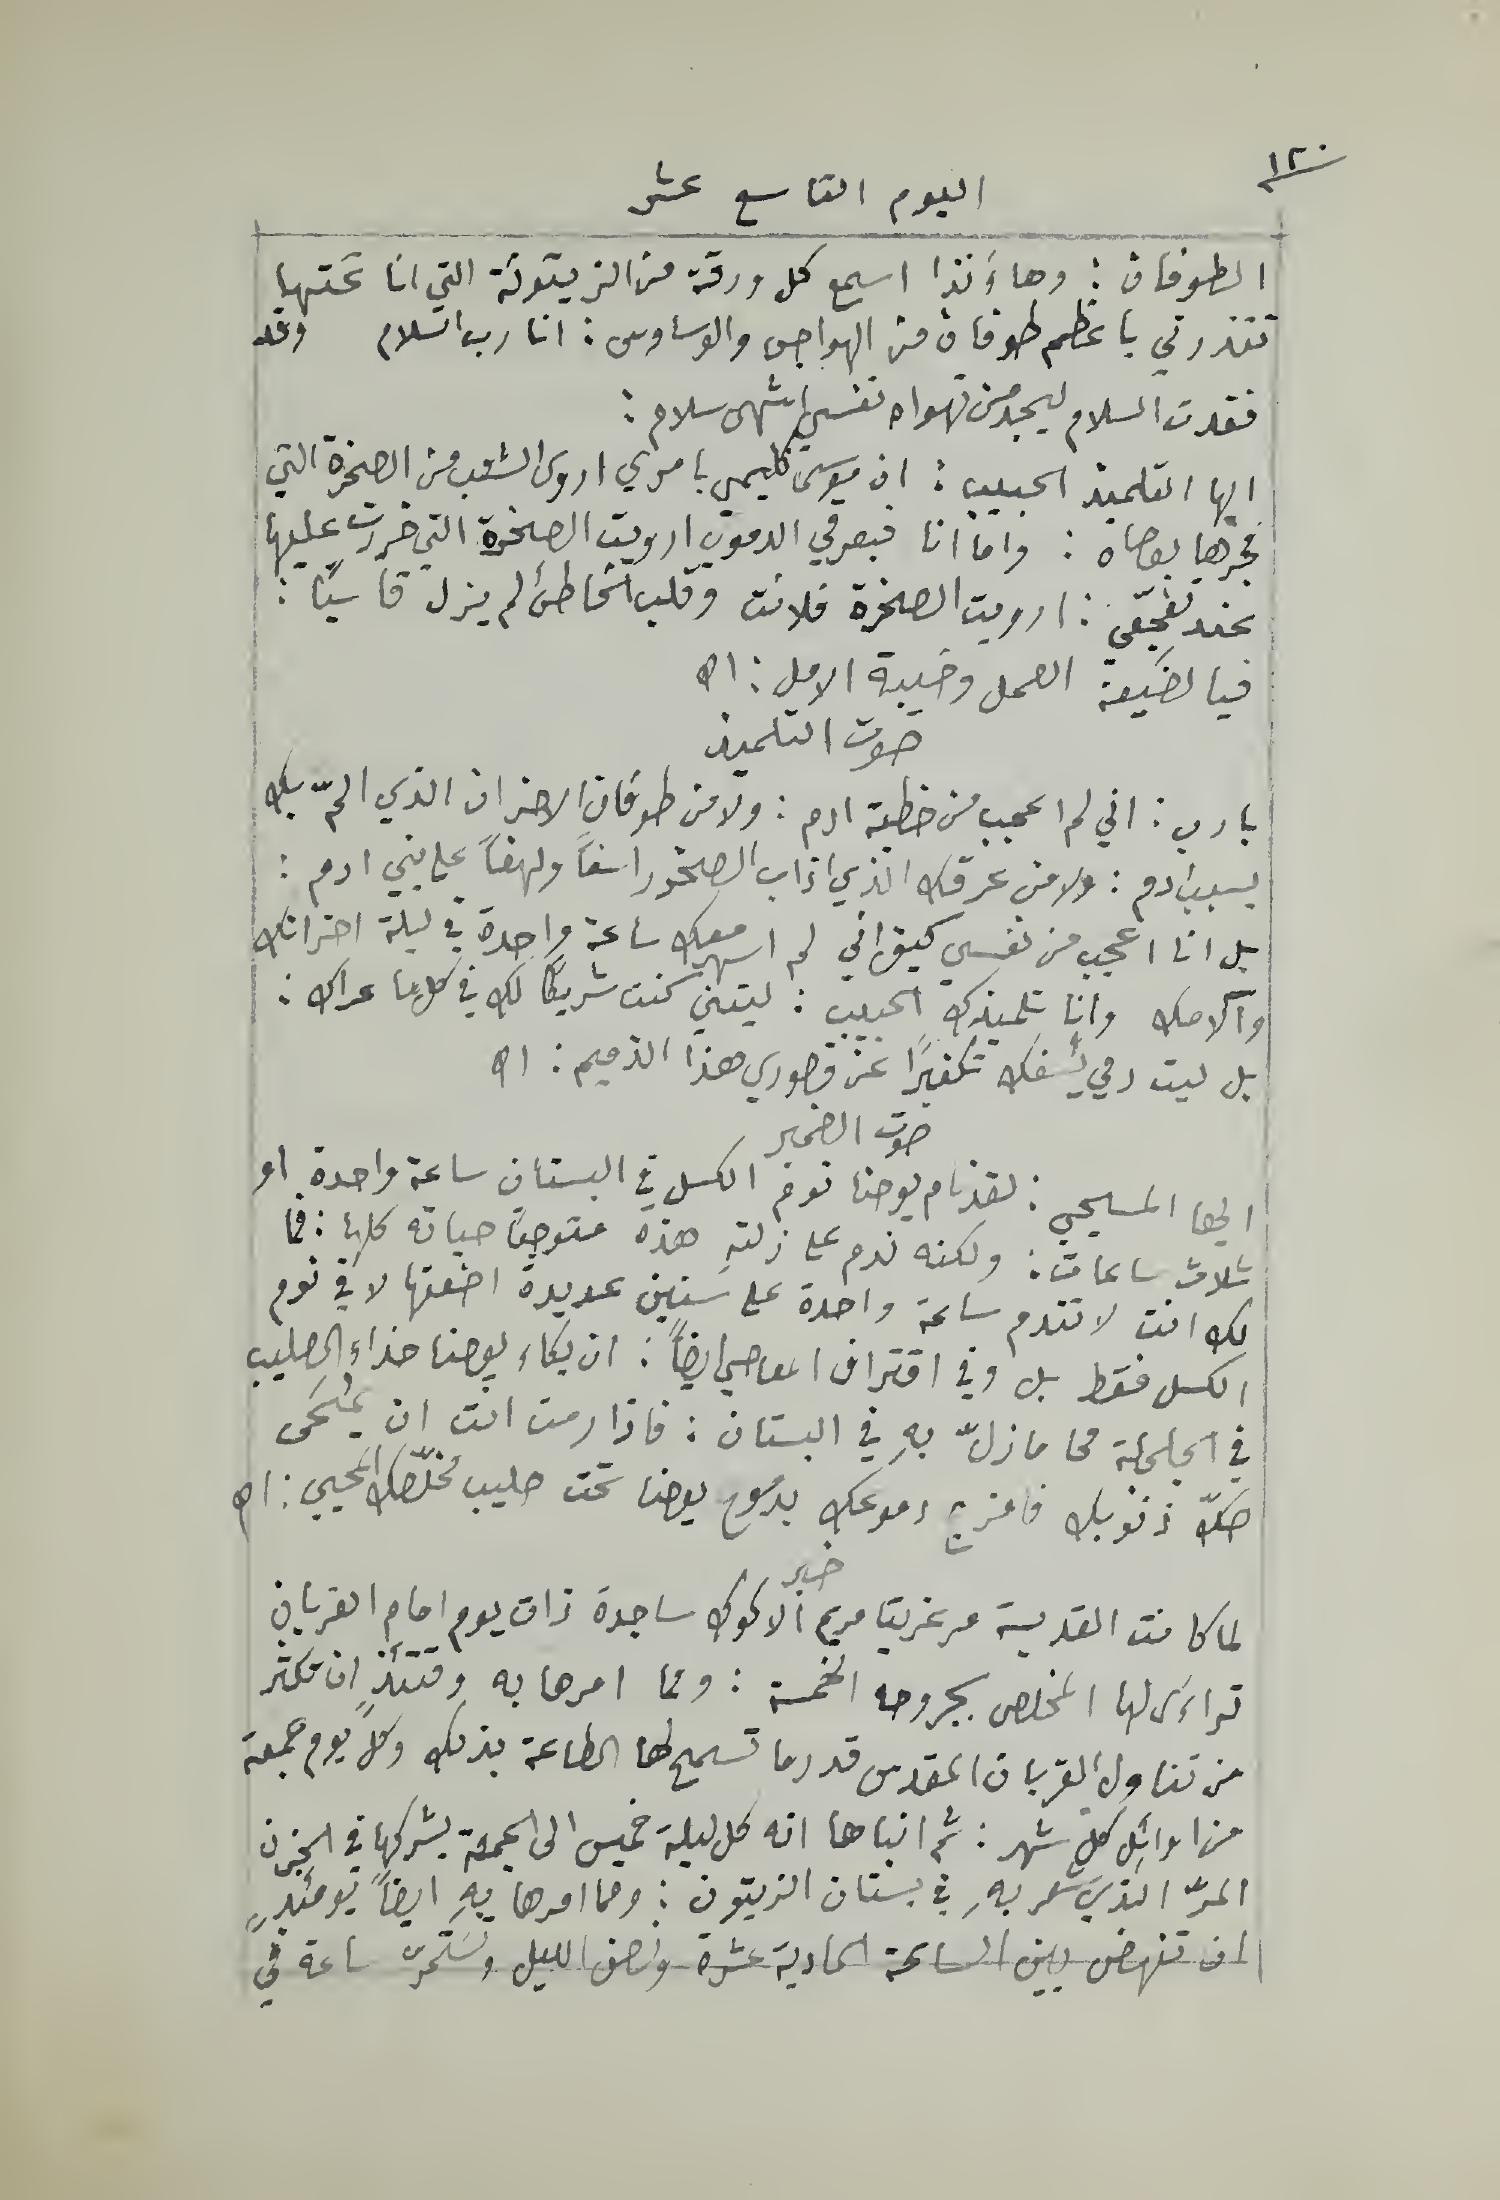 ١٢٠
اليوم التاسع عشر
الطوفان : وهاءَنذا اسمع كل ورقة من الزيتونة التي انا تحتها
تنذرني باعظم طوفان من الهواجس والوساوس : انا رب السلام وقد
فقدت السلام ليجد من تهواه نفسي اشهى سلام :
ايها التلميذ الحبيب : ان موسى كليمي بامري اروى الشعب من الصخرة التي
فجرها بعصاه : واما انا فبعرقي الدموي ارويت الصخرة التي خررت عليها
عند تفجّعي : ارويت الصخرة فلانت وقلب الخاطئ لم يزل قاسيًا :
فيا لضَيعة العمل وخيبة الامل : اه
صوت التلميذ
يا رب : اني لم اعجب من خطية ادم : ولا من طوفان الاحزان الذي المّ بك
بسبب ادم : ولا من عرقك الذي اذاب الصخور اسفاً ولهفاً على بني ادم :
بل انا اعجب من نفسي كيف اني لم اسهر معك ساعة واحدة في ليلة احزانك
وآلامك وانا تلميذك الحبيب : ليتني كنت شريكًا لك في كل ما عراك :
بل ليت دمي يُسفك تكفيرًا عن قصوري هذا الذميم : اه
صوت الضمير
ايها المسيحي : لقد نام يوحنا نوم الكسل في البستان ساعة واحدة او
ثلاث ساعات : ولكنه ندم على زلتهِ هذه متوجعًا حياته كلها : فما
لك انت لا تندم ساعة واحدة على سنين عديدة اضعتها لا في نوم
الكسل فقط بل وفي اقتراف المعاصي ايضاً : ان بكاء يوحنا حذاء الصليب
في الجلجلة محا ما زلّ بهِ في البستان : فاذا رمت انت ان يُمْحَى
صكّ ذنوبك فامزج دموعك بدموع يوحنا تحت صليب مخلّصك المحيي : اه
خبر
لما كانت القديسة مرغريتا مريم ألاكوك ساجدة ذات يوم امام القربان
تراءَى لها المخلص بجروحه الخمسة : ومما امرها به وقتئذٍ ان تكثر
من تناول القربان المقدس قدر ما تسمح لها الطاعة بذلك وكلّ يوم جمعة
من اوائل كل شهر : ثم انباها انه كل ليلة خميس الى الجمعة يشركها في الحزن
المرّ الذي شعر بهِ في بستان الزيتون : ومما امرها بهِ ايضاً يومئذٍ
ان تنهض بين الساعة الحادية عشرة ونصف الليل وتستمر ساعة في